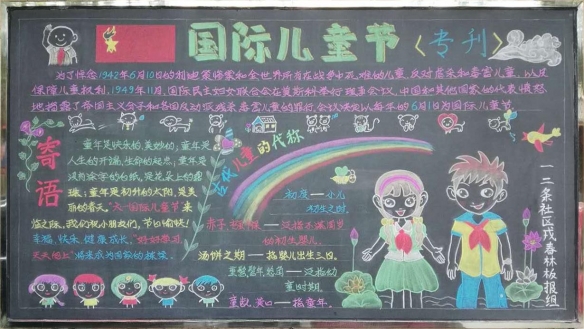 国际儿童节
〈专刊〉
为了悼念1942年6月10日的利迪策惨案和全世界所有在战争中死难的儿童,反对虐杀和毒害儿童,以及
保障儿童权利,1949年11月,国际民主妇女联合会在莫斯科举行理事会议,中国和其他国家的代表愤怒
地揭露了帝国主义分子和各国反动派残杀毒害儿童的罪行,会议决定以每年的6月1日为国际儿童节
寄语
童年是快乐的、美妙的;童年是
人生的开端,生命的起志;童年是
的白纸,是花蕾上的露
珠;童年是初升的太阳,是美
丽的春天。"六一"国际儿童节来
临之际,我们祝小朋友们,节日愉快!
幸福、快乐、健康成长,"好好学习
天天向上"将来成为国家的栋梁
古代儿童的代称
初度——小儿
初生之时
赤子、——泛指未满周岁
的初生婴儿
汤饼之期——指婴儿出生三日。
——泛指幼
童时期
——指童年。
一二条社区戏春林板报组